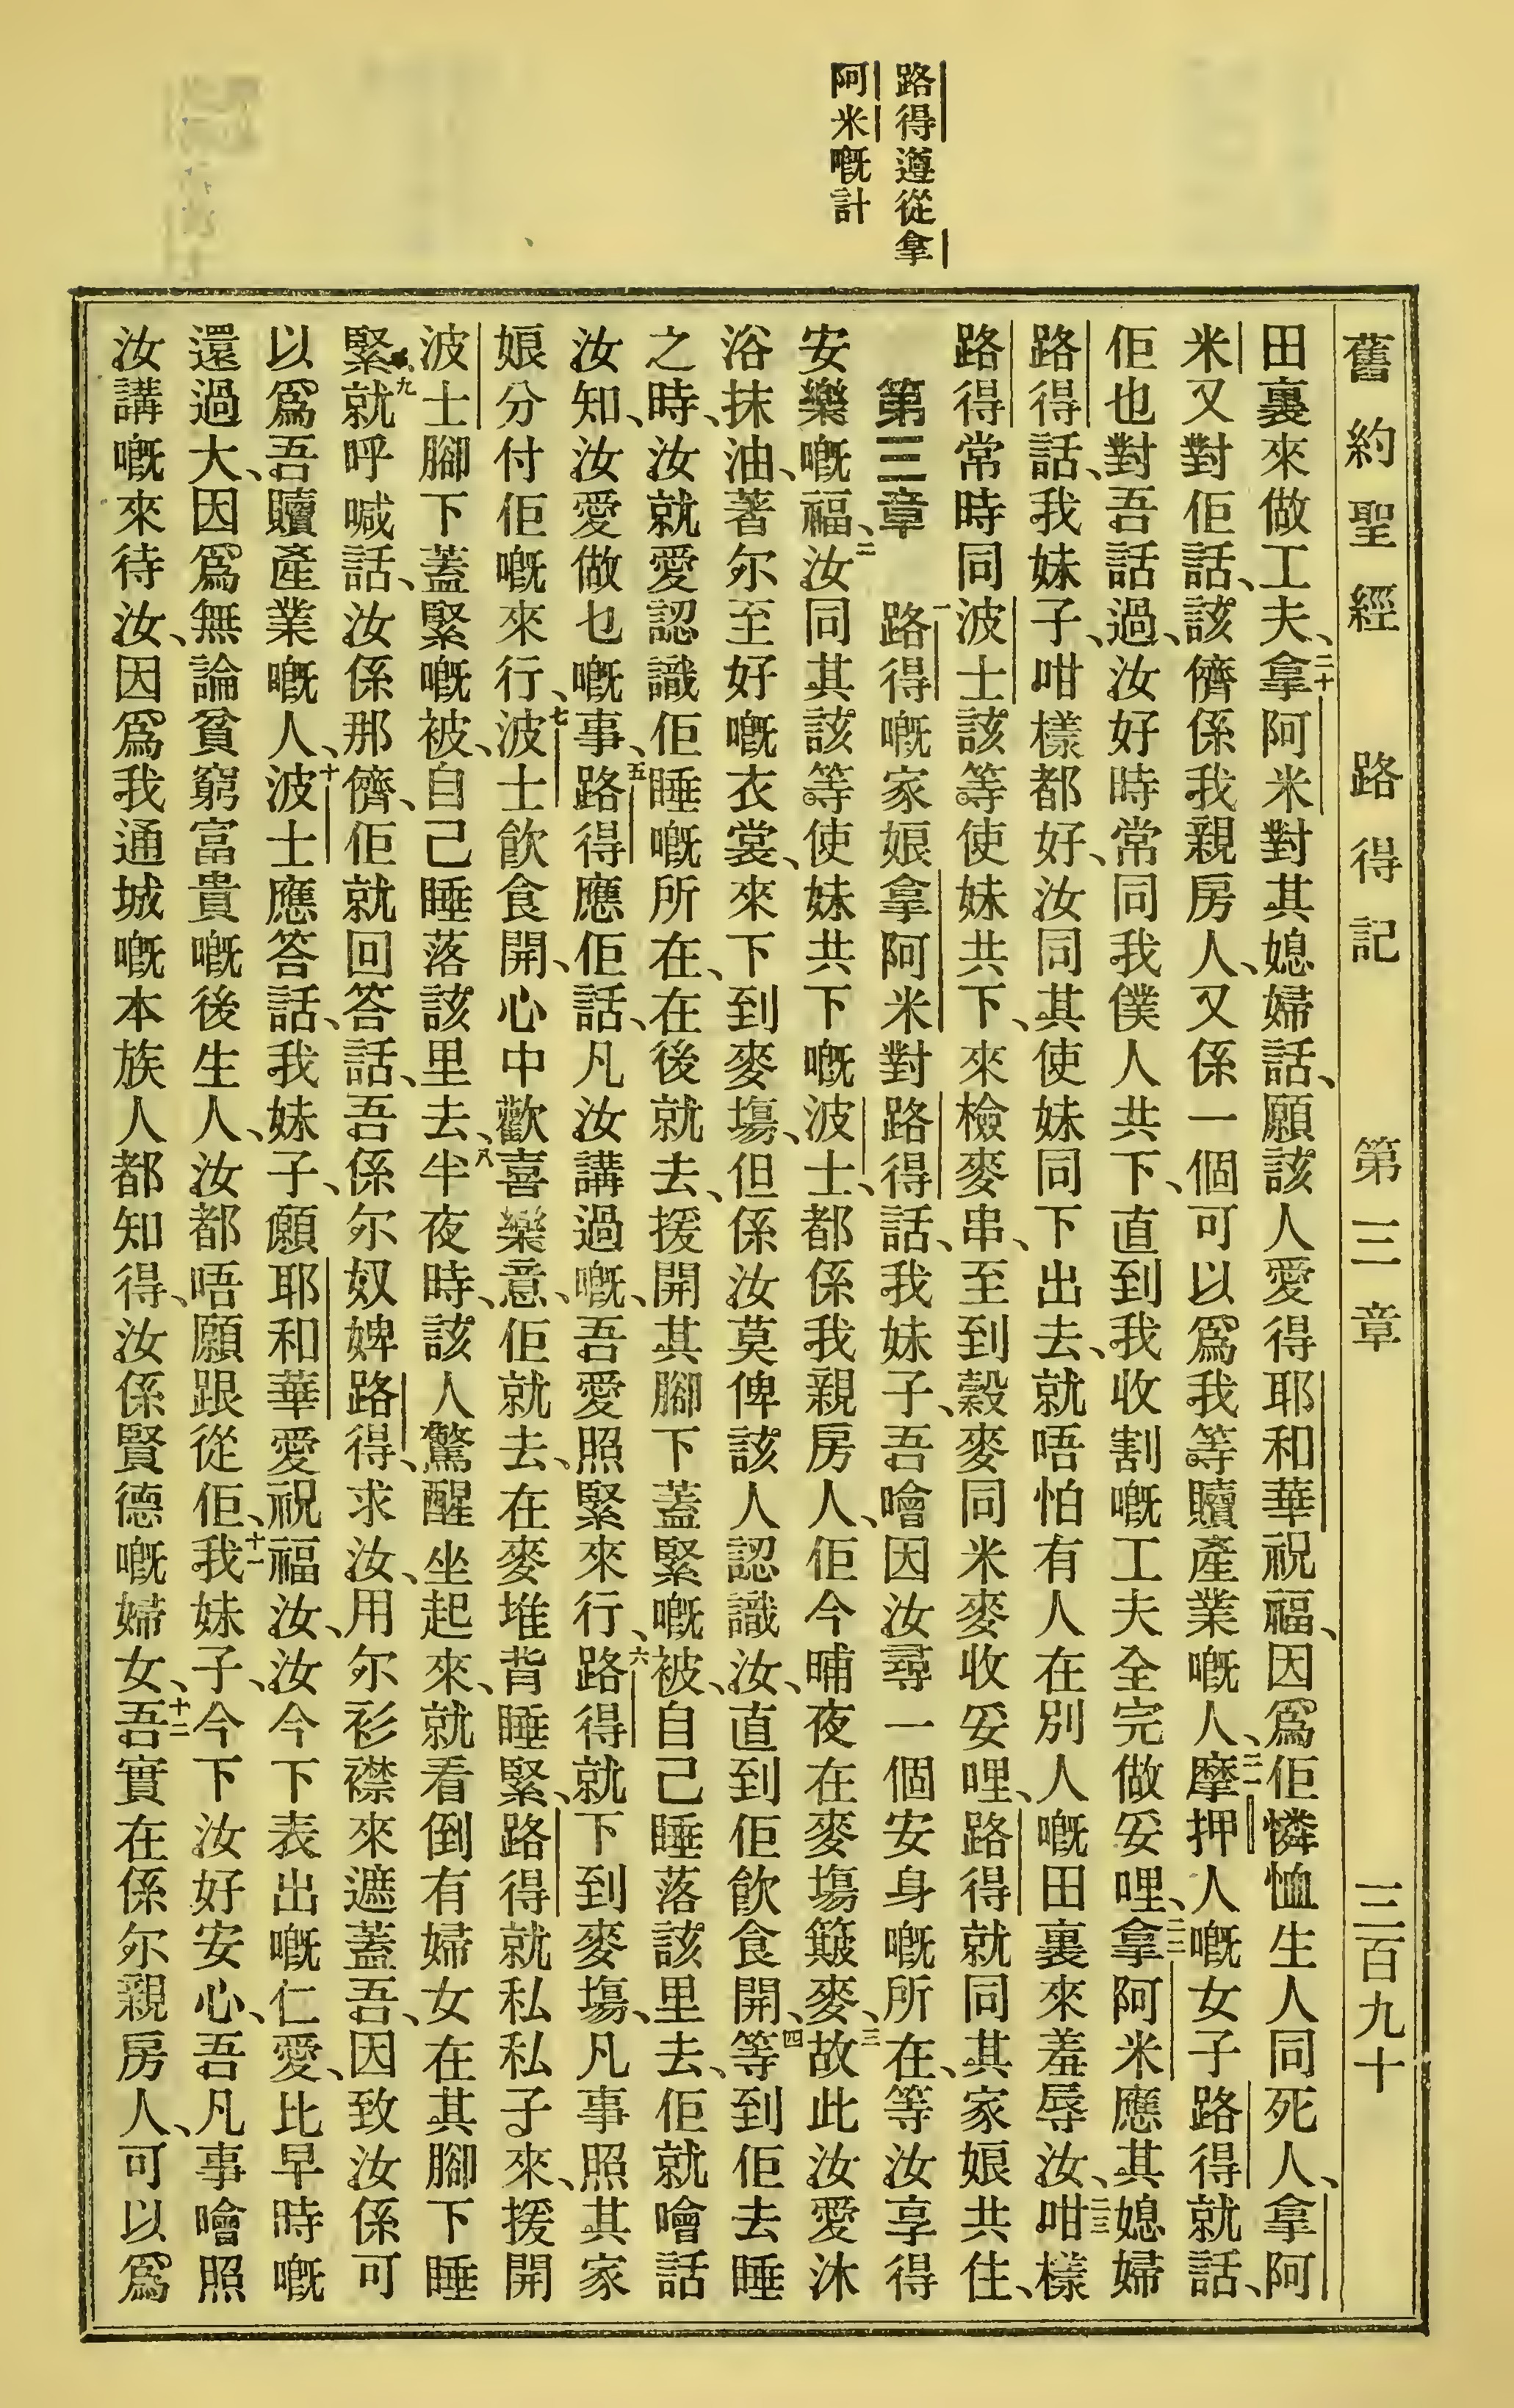 路得遵從拿
阿米嘅計
舊約聖經 路得記 第三章 三百九十
田裏來做工夫、二十拿阿米對其媳婦話、願該人愛得耶和華祝福、因爲佢憐恤生人同死人、拿阿
米又對佢話、該儕係我親房人、又係一個可以爲我等贖產業嘅人、二一摩押人嘅女子路得就話、
佢也對吾話過、汝好時常同我僕人共下、直到我收割嘅工夫全完做妥哩、二二拿阿米應其媳婦
路得話、我妹子、咁樣都好、汝同其使妹同下出去、就唔怕有人在別人嘅田裏來羞辱汝、二三咁樣
路得常時同波士該等使妹共下、來檢麥串、至到穀麥同米麥收妥哩、路得就同其家娘共住、
第三章 一路得嘅家娘拿阿米對路得話、我妹子、吾噲因汝尋一個安身嘅所在、等汝享得
安樂嘅福、二汝同其該等使妹共下嘅波士、都係我親房人、佢今晡夜在麥塲簸麥、三故此汝愛沐
浴抹油、著尔至好嘅衣裳、來下到麥塲、但係汝莫俾該人認識汝、直到佢飲食開、四等到佢去睡
之時、汝就愛認識佢睡嘅所在、在後就去、援開其腳下蓋緊嘅被、自己睡落該里去、佢就噲話
汝知、汝愛做乜嘅事、五路得應佢話、凡汝講過嘅、吾愛照緊來行、六路得就下到麥塲、凡事照其家
娘分付佢嘅來行、七波士飲食開、心中歡喜樂意、佢就去、在麥堆背睡緊、路得就私私子來、援開
波士腳下蓋緊嘅被、自己睡落該里去、八半夜時、該人驚醒坐起來、就看倒有婦女在其腳下睡
緊、九就呼喊話、汝係那儕、佢就回答話、吾係尔奴婢路得、求汝、用尔衫襟來遮蓋吾、因致汝係可
以爲吾贖產業嘅人、十波士應答話、我妹子、願耶和華愛祝福汝、汝今下表出嘅仁愛、比早時嘅
還過大、因爲無論貧窮富貴嘅後生人、汝都唔願跟從佢、十一我妹子、今下汝好安心、吾凡事噲照
汝講嘅來待汝、因爲我通城嘅本族人都知得、汝係賢德嘅婦女、十二吾實在係尔親房人、可以爲